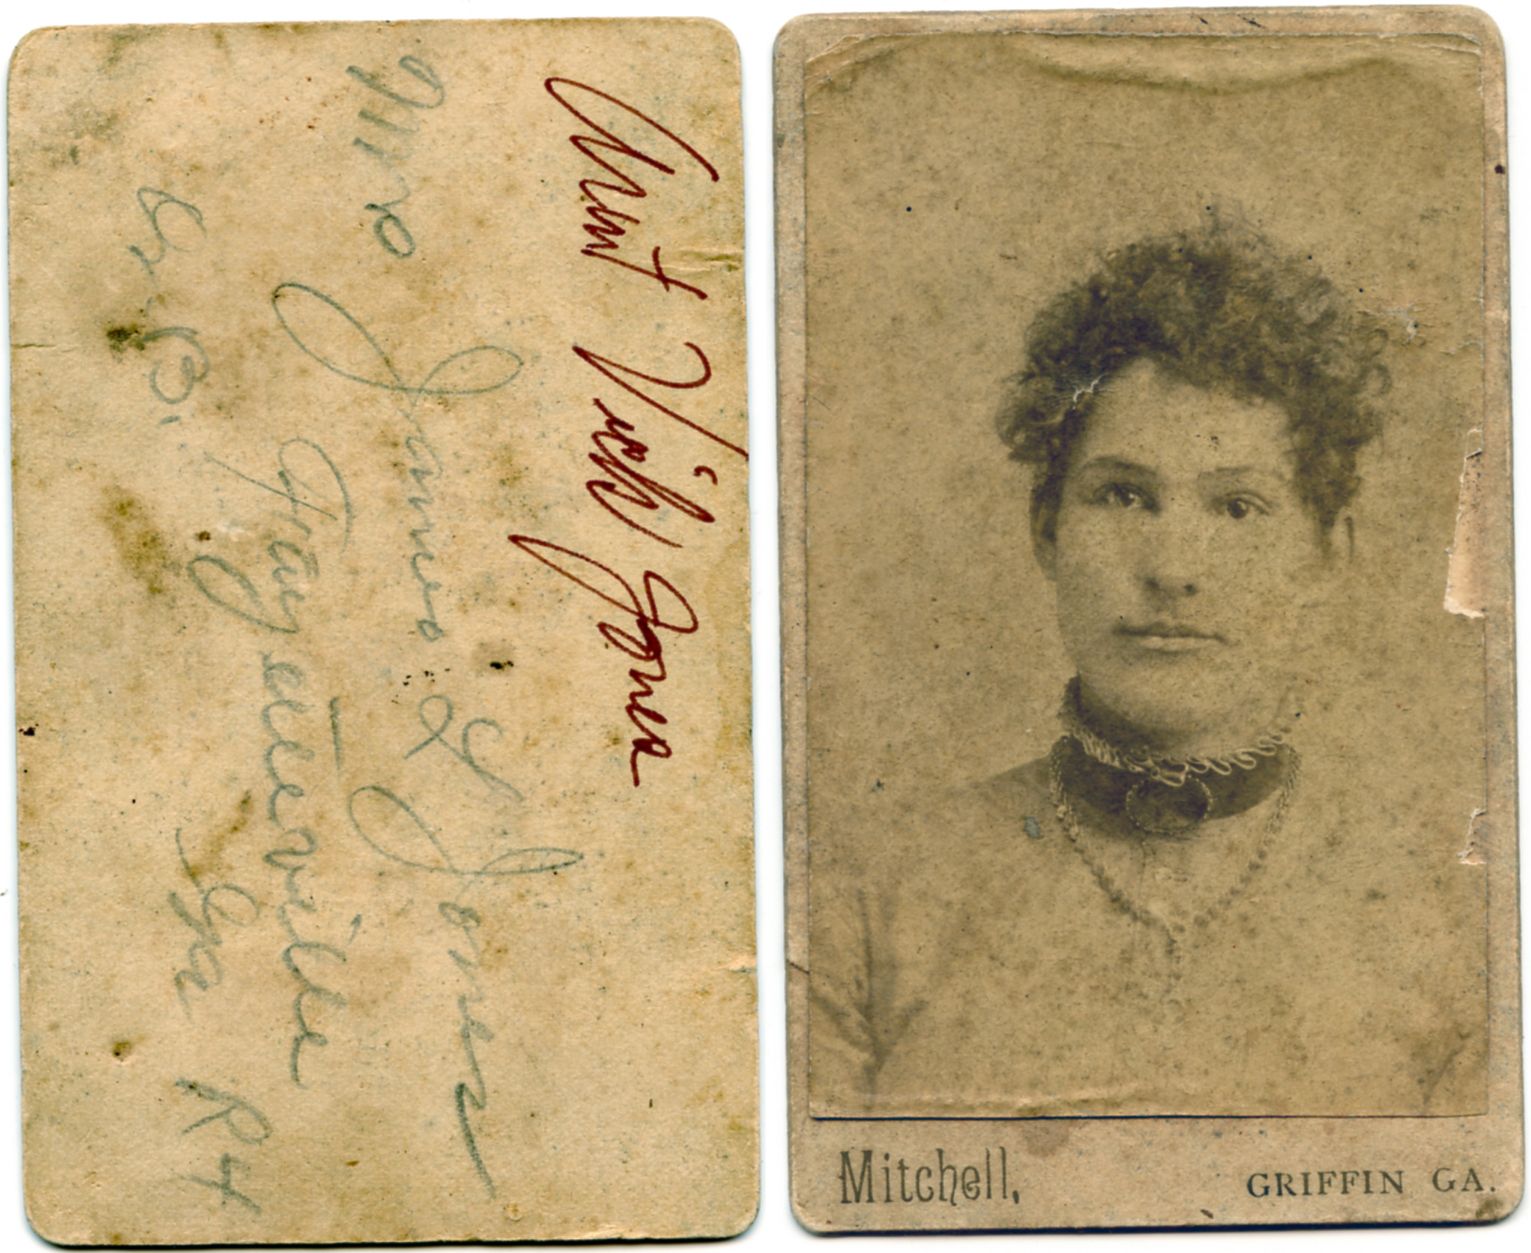 Aunt Jones
Mrs James Jones
Fayetteville
Ga R4
Mitchell,
GRIFFIN GA.